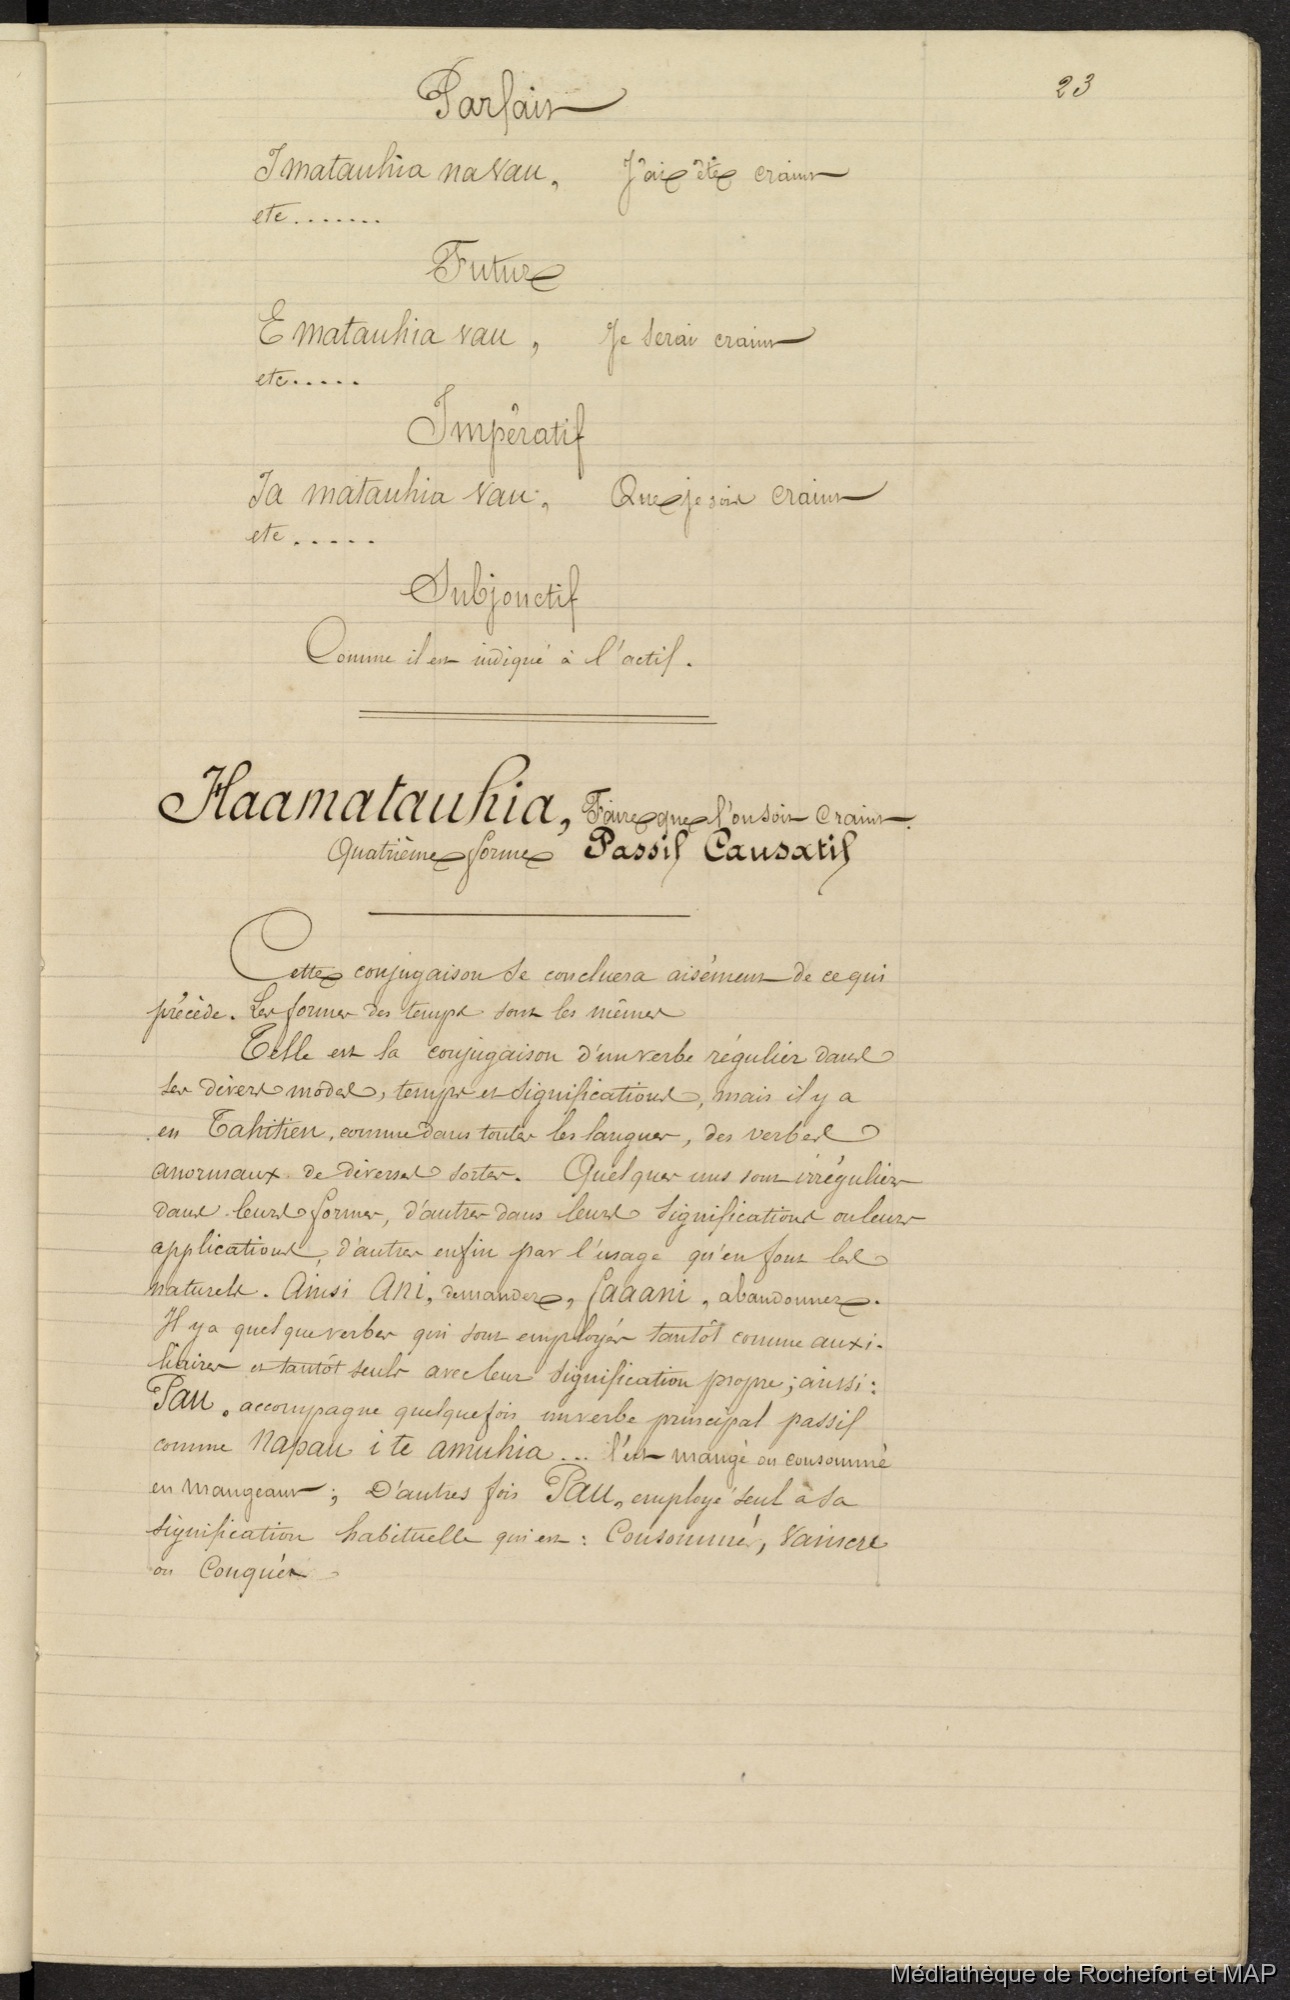 23
Parfait
I matauhia na vau, J'ai été craint
etc.......
Futur
E matauhia vau, Je serai craint
etc.....
Impératif
Ia matauhia vau, Que je sois craint
etc.....
Subjonctif
Comme il est indiqué à l'actif.
Haamatauhia, Faire que l'on soit craint.
Quatrième forme Passif Causatif
Cette conjugaison se concluera aisément de ce qui
précède. Les formes des temps sont les mêmes
Telle est la conjugaison d'un verbe régulier dans
ses divers modes, temps et significations, mais il y a
en Tahitien, comme dans toutes les langues, des verbes
anormaux de diverses sortes. Quelques uns sont irréguliers
dans leurs formes, d'autres dans leurs significations ou leurs
applications, d'autres enfin par l'usage qu'en font les
naturels. Ainsi Ani, demander, faaani, abandonner.
Il y a quelque verbes qui sont employés tantôt comme auxi-
liaires et tantôt seuls avec leur signification propre; ainsi:
Pau, accompagne quelquefois un verbe principal passif
comme Napau i te amuhia... l'est mangé ou consommé
en mangeant; D'autres fois Pau, employé seul à sa
signification habituelle qui est: Consommer, Vaincre
ou Conquér
Médiathèque de Rochefort et MAP